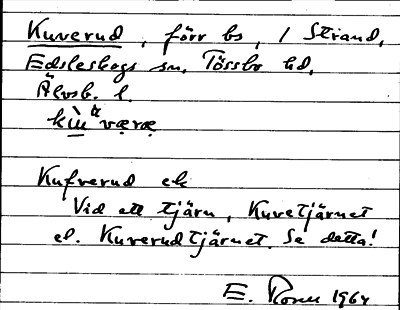 Kuverud, förr bs, / Strand,
Edsleskogs sn, Tössbo hd,
Älvsb. l.
Kufverud ek
Vid ett tjärn, Kuvetjärnet
el. Kuverudtjärnet. Se detta!
E. 1964